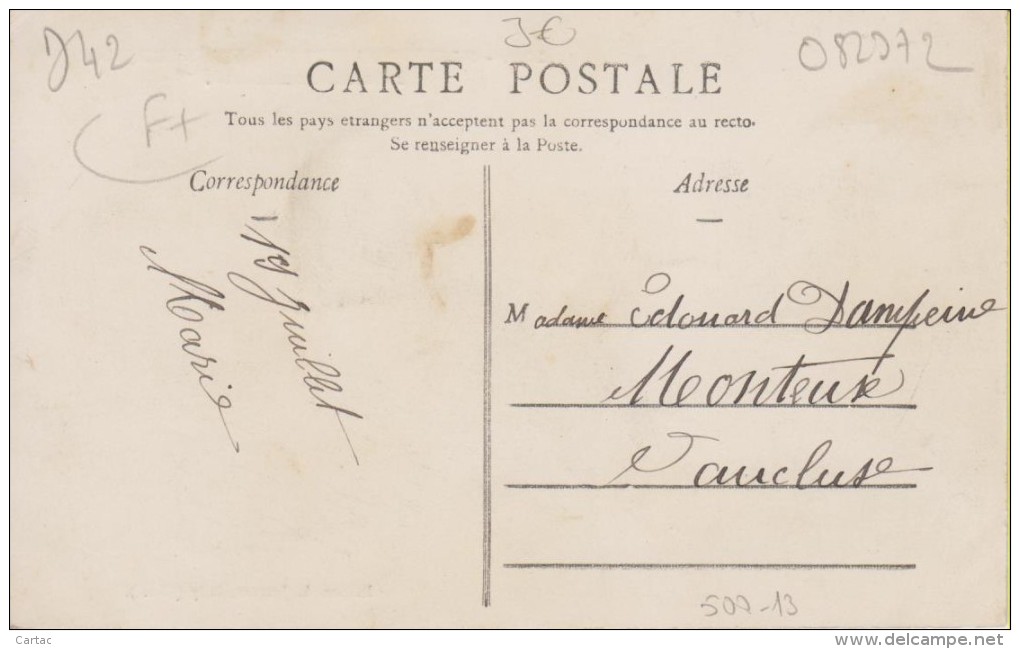 D42
3€
082972
F+
CARTE POSTALE
Tous les pays etrangers n'acceptent pas la correspondance au recto.
Se renseigner à la Poste.
Correspondance
19 Juillet
Marie
Adresse
Madame Edouard Dampeine
Monteux
Vaucluse
Cartac
www.delcampe.net